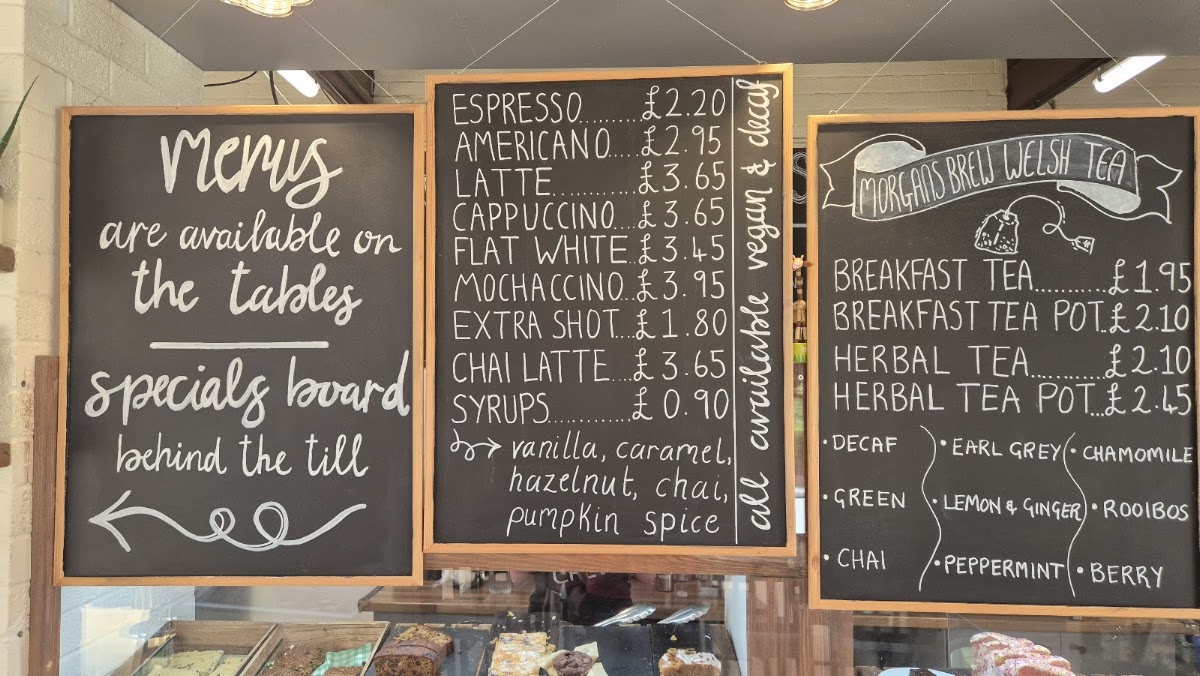 Menus
are available on
the tables
specials board
behind the till
ESPRESSO........£2.20
AMERICANO.....£2.95
LATTE............£3.65
CAPPUCCINO....£3.65
FLAT WHITE..£3.45
MOCHACCINO..£3.95
EXTRA SHOT...£1.80
CHAI LATTE....£3.65
SYRUPS...........£0.90
vanilla, caramel,
hazelnut, chai,
pumpkin spice
all available vegan & decaf
MORGANS BREW WELSH TEA
BREAKFAST TEA..........£1.95
BREAKFAST TEA POT..£2.10
HERBAL TEA...........£2.10
HERBAL TEA POT...£2.45
• DECAF • EARL GREY • CHAMOMILE
• GREEN • LEMON & GINGER • ROOIBOS
• CHAI • PEPPERMINT • BERRY